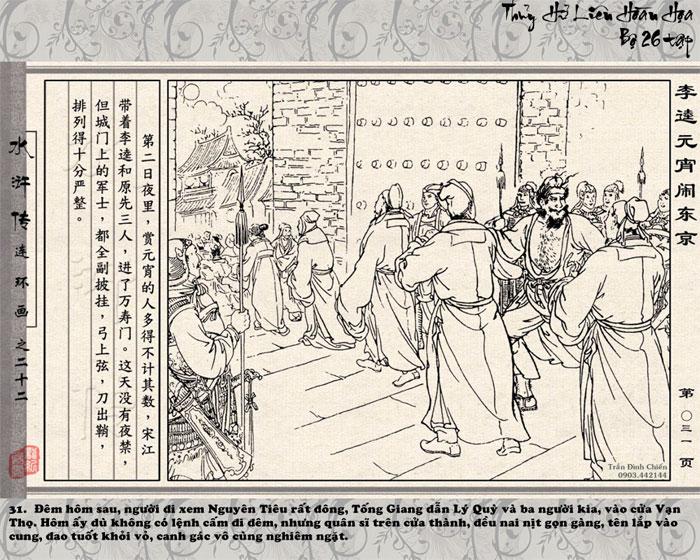 Thủy Hử Liên Hoàn Họa
Bộ 26 tập
李逵元宵闹东京
第〇三一页
第二日夜里，赏元宵的人多得不计其数，宋江
带着李逵和原先三人，进了万寿门。这天没有夜禁，
但城门上的军士，都全副披挂，弓上弦，刀出鞘，
排列得十分严整。
水浒传连环画之二十二
Trần Đình Chiến
0903.442144
31. Đêm hôm sau, người đi xem Nguyên Tiêu rất đông, Tống Giang dẫn Lý Quỳ và ba người kia, vào cửa Vạn
Thọ. Hôm ấy dù không có lệnh cấm đi đêm, nhưng quân sĩ trên cửa thành, đều nai nịt gọn gàng, tên lắp vào
cung, đao tuốt khỏi vỏ, canh gác vô cùng nghiêm ngặt.